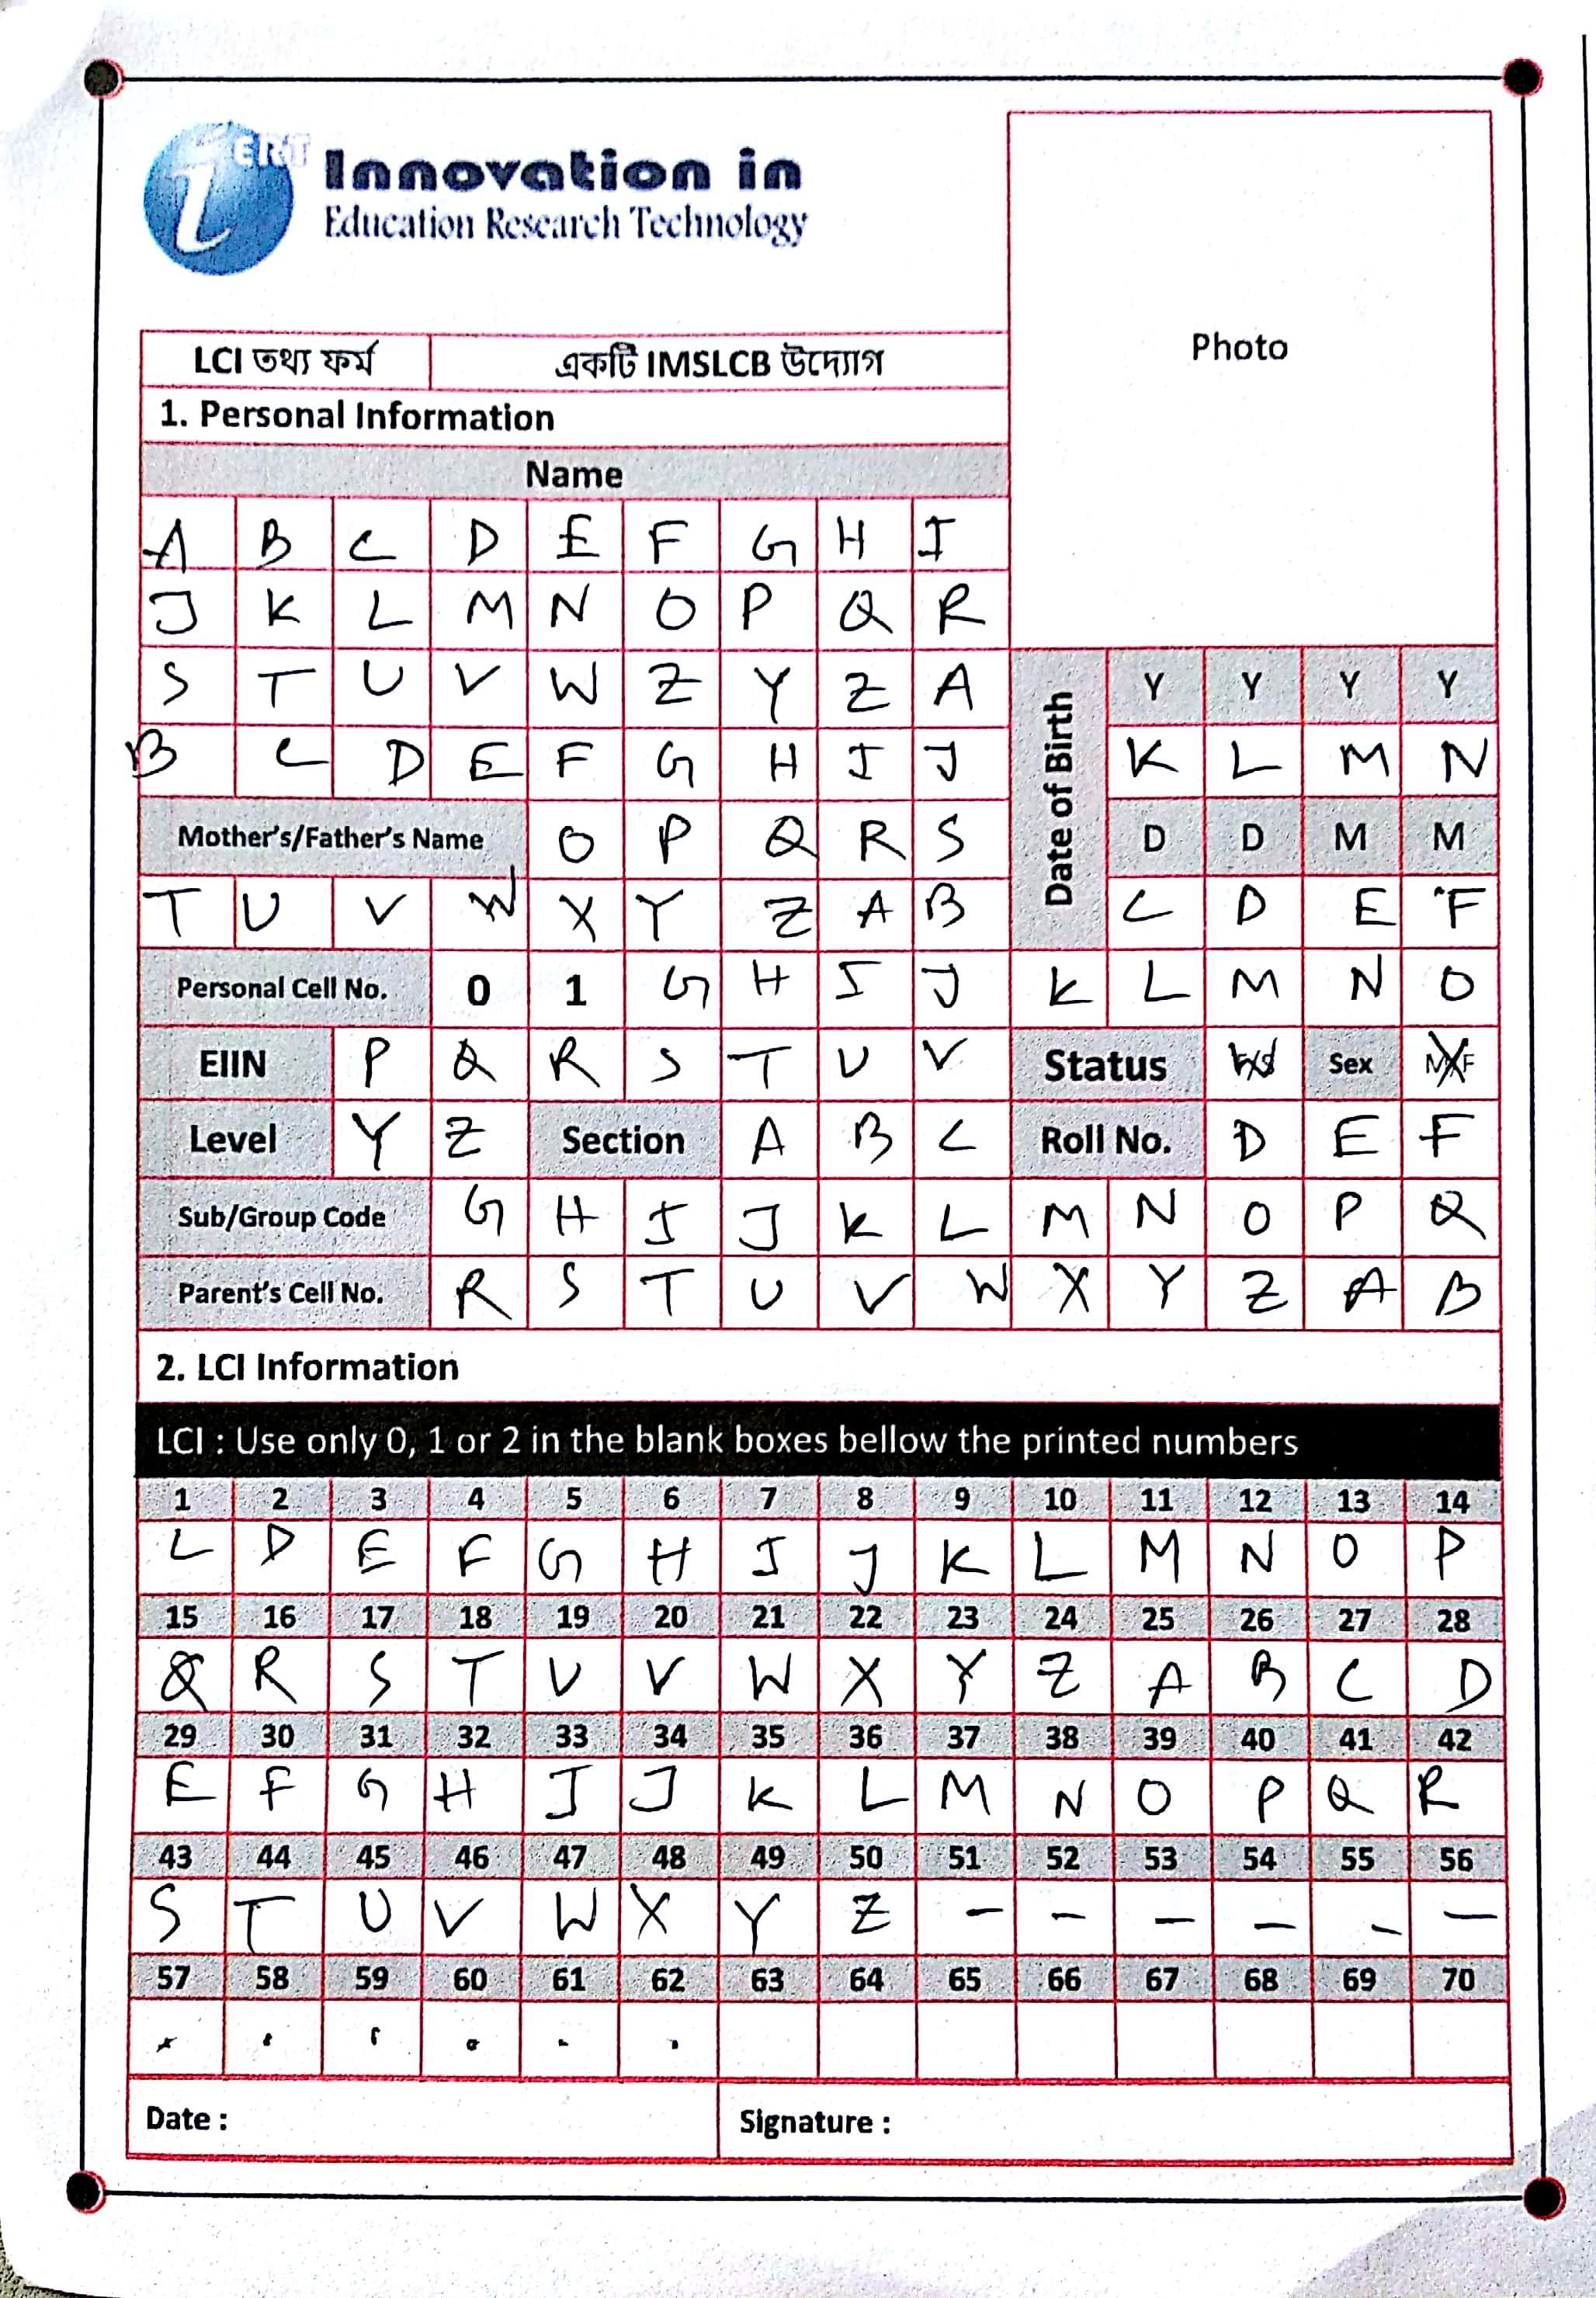 iERT Innovation in
Education Research Technology
Photo
LCI তথ্য ফর্ম একটি IMSLCB উদ্যোগ
1. Personal Information
Name
A B C D E F G H I
J K L M N O P Q R
S T U V W Z Y Z A
Date of Birth Y Y Y Y
B C D E F G H I J K L M N
Mother's/Father's Name O P Q R S D D M M
T U V W X Y Z A B C D E F
Personal Cell No. 0 1 G H I J K L M N O
EIIN P Q R S T U V Status W Sex X
Level Y Z Section A B C Roll No. D E F
Sub/Group Code G H I J K L M N O P Q
Parent's Cell No. R S T U V W X Y Z A B
2. LCI Information
LCI : Use only 0, 1 or 2 in the blank boxes bellow the printed numbers
1 2 3 4 5 6 7 8 9 10 11 12 13 14
C D E F G H I J K L M N O P
15 16 17 18 19 20 21 22 23 24 25 26 27 28
Q R S T U V W X Y Z A B C D
29 30 31 32 33 34 35 36 37 38 39 40 41 42
E F G H I J K L M N O P Q R
43 44 45 46 47 48 49 50 51 52 53 54 55 56
S T U V W X Y Z – – – – – –
57 58 59 60 61 62 63 64 65 66 67 68 69 70
Date : Signature :